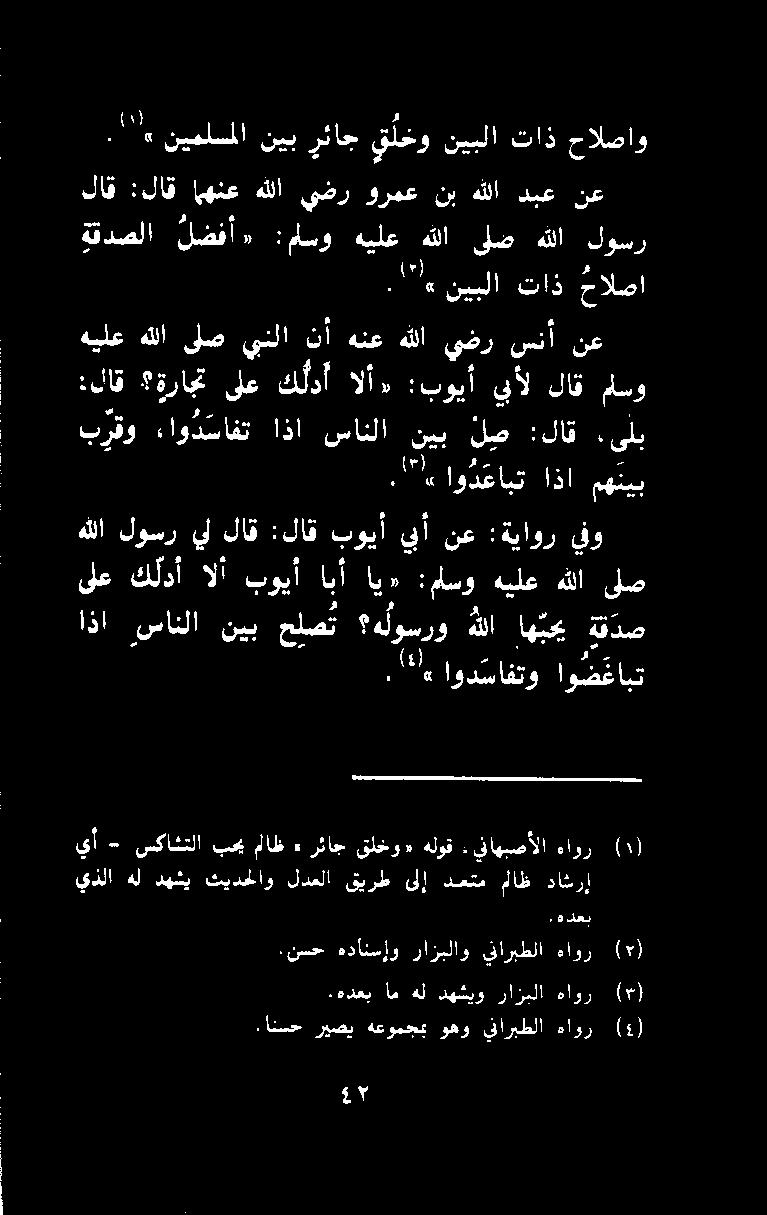 واصلاح ذات البين وخُلُقٍ جائرٍ بين المسلمين »(١) .
عن عبد الله بن عمرو رضي الله عنهما قال: قال
رسول الله صلى الله عليه وسلم: «أفضلُ الصدقةِ
اصلاحُ ذات البين »(٢) .
عن أنس رضي الله عنه أن النبي صلى الله عليه
وسلم قال لأبي أيوب: «ألا أدلُّك على تجارةٍ؟ قال:
بلى، قال: صِلْ بين الناس اذا تفاسَدُوا، وقرِّب
بينَهم اذا تباعَدُوا »(٣) .
وفي رواية: عن أبي أيوب قال: قال لي رسول الله
صلى الله عليه وسلم: «يا أبا أيوب ألا أدلّك على
صدَقةٍ يحبّها اللهُ ورسولُه؟ تُصلِح بين الناسِ اذا
تباغَضُوا وتفاسَدوا »(٤) .
(١) رواه الأصبهاني، قوله «وخلق جائر » ظالم يحب التشاكس - أي
إرشاد ظالم متعمد إلى طريق العدل والحديث يشهد له الذي
بعده.
(٢) رواه الطبراني والبزار وإسناده حسن.
(٣) رواه البزار ويشهد له ما بعده.
(٤) رواه الطبراني وهو بمجموعه يصير حسنا.
٤٢